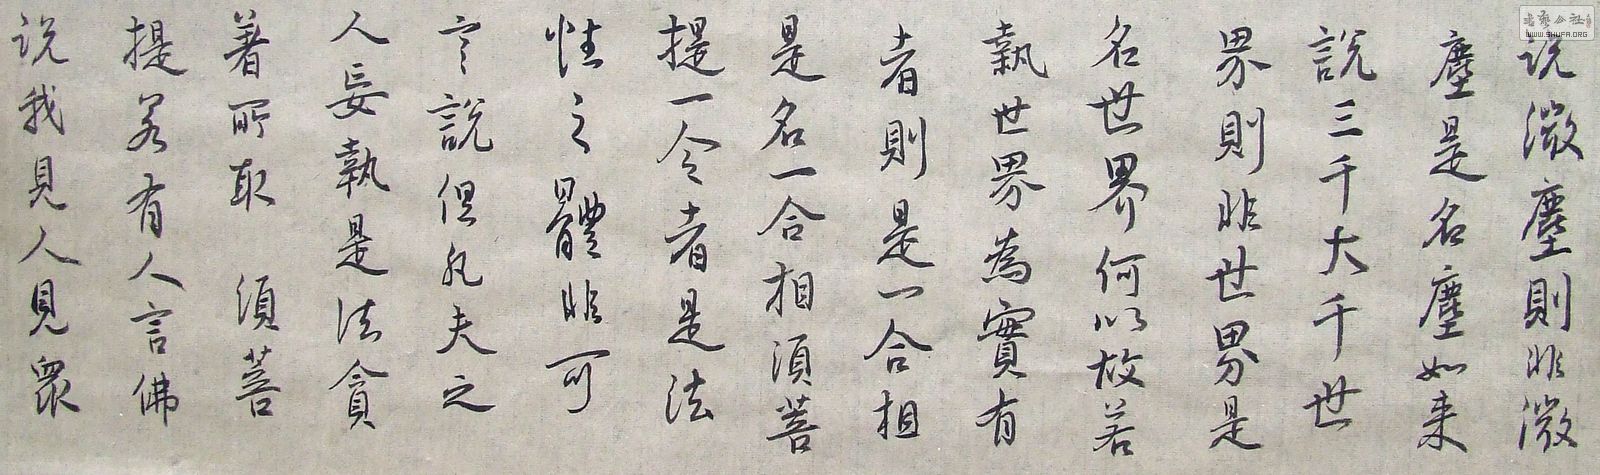 说微塵則非微
塵是名塵如来
說三千大千世
界則非世界是
名世界何以故若
執世界為實有
者則是一合相
是名一合相須菩
提一令者是法
性之體非可
言說但凡夫之
人妄執是法貪
著所取 須菩
提若有人言佛
说我見人見眾
書藝公社
WWW.SHUFA.ORG